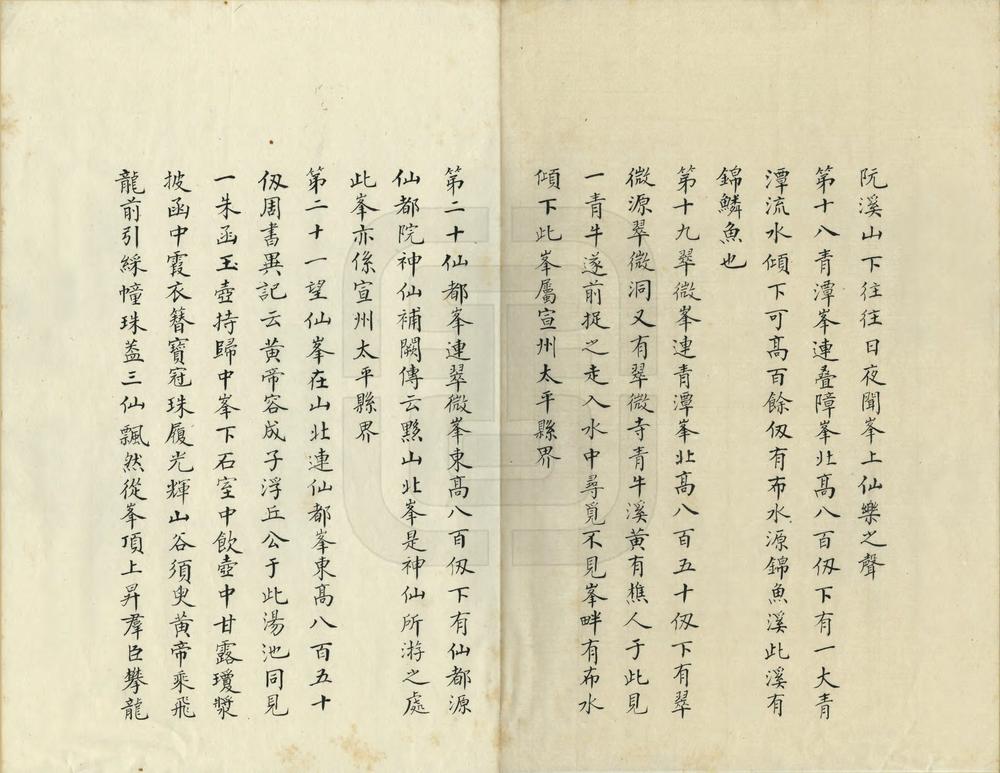 阮溪山下往往日夜聞峯上仙樂之聲
第十八青潭峯連疊障峯北高八百仭下有一大青
潭流水傾下可高百餘仭有布水源錦魚溪此溪有
錦鱗魚也
第十九翠微峯連青潭峯北高八百五十仭下有翠
微源翠微洞又有翠微寺青牛溪黄有樵人于此見
一青牛遂前捉之走入水中尋覓不見峯畔有布水
傾下此峯屬宣州太平縣界
第二十仙都峯連翠微峯東高八百仭下有仙都源
仙都院神仙補闕傳云黟山北峯是神仙所游之處
此峯亦係宣州太平縣界
第二十一望仙峯在山北連仙都峯東高八百五十
仭周書異記云黄帝容成子浮丘公于此湯池同見
一朱函玉壺持歸中峯下石室中飲壺中甘露瓊漿
披函中霞衣簪寶冠珠履光輝山谷須臾黄帝乘飛
龍前引綵幢珠蓋三仙飄然從峯頂上昇羣臣攀龍